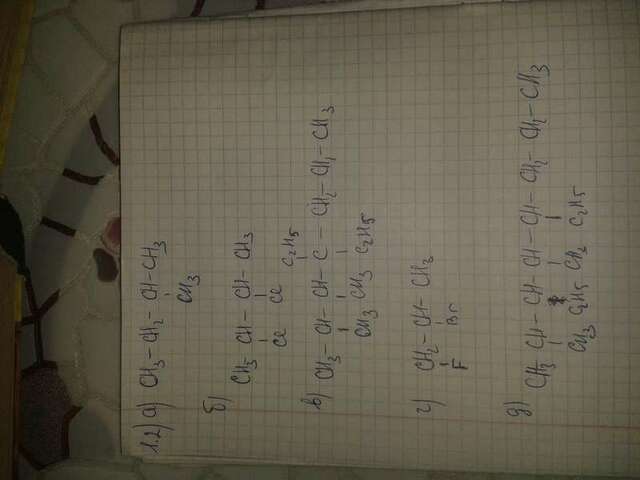 1.2) а) CH3 – CH2 – CH – CH3
CH3
б) CH3 – CH – CH – CH3
Cl Cl
C2H5
в) CH3 – CH – CH – C – CH2 – CH2 – CH3
CH3 CH3 C2H5
г) CH2 – CH – CH3
F Br
д) CH3 – CH – CH – CH – CH – CH2 – CH2 – CH3
CH3 C2H5 CH3 C2H5